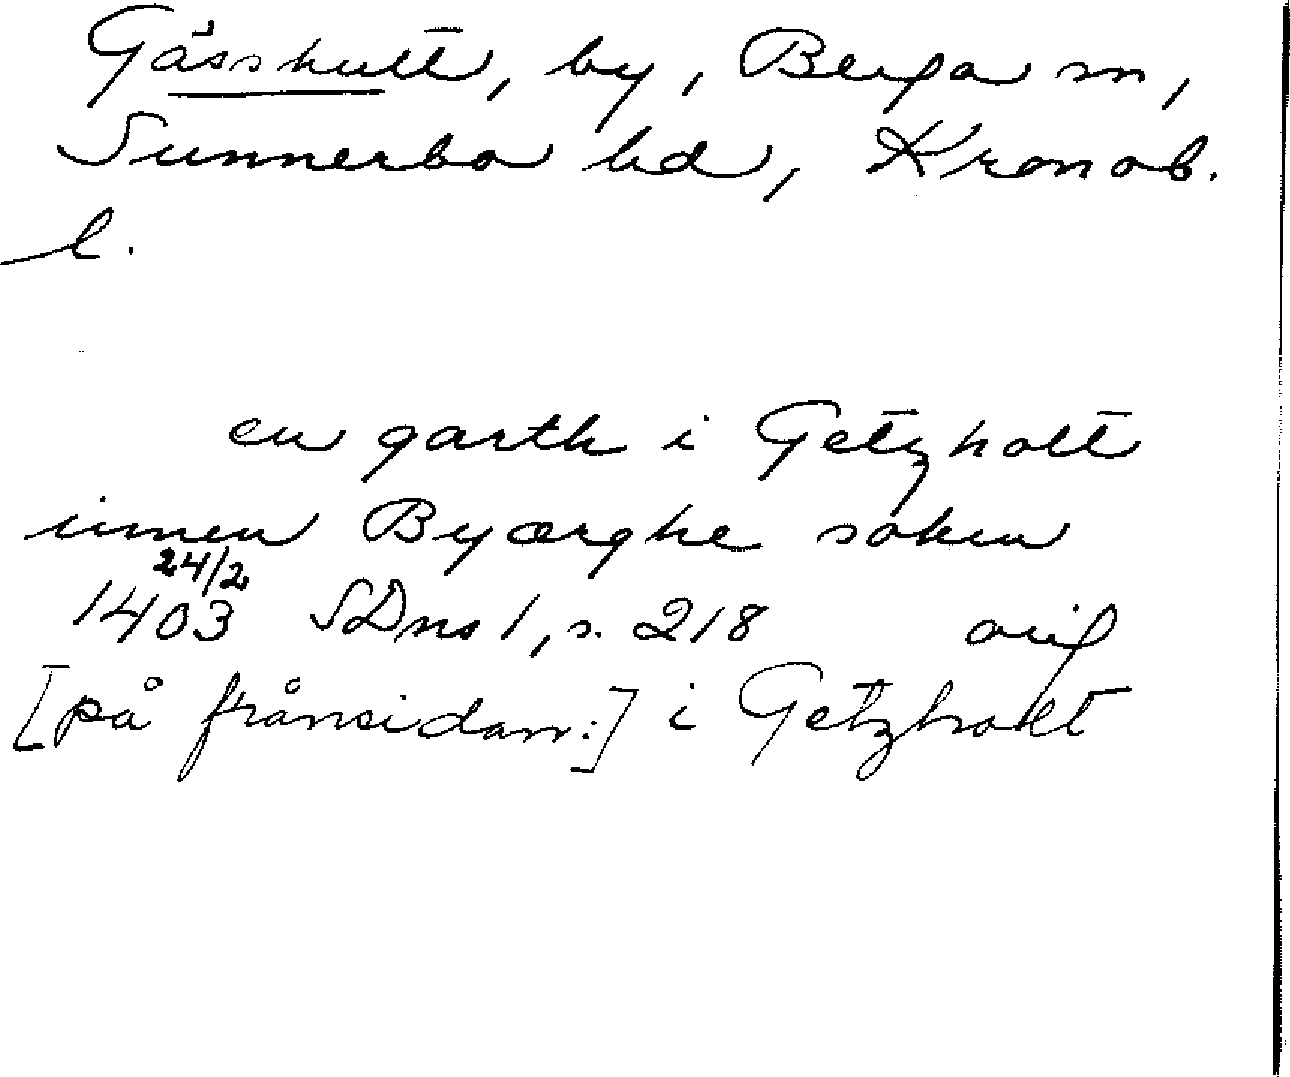 Gåsshult, by, Berga sn,
Sunnerbo hd, Kronob.
l.
en garth i Getzholt
innen Byærghe sokn
24/2
1403 SDns 1, s. 218 orig
[på frånsidan:] i Getzholt